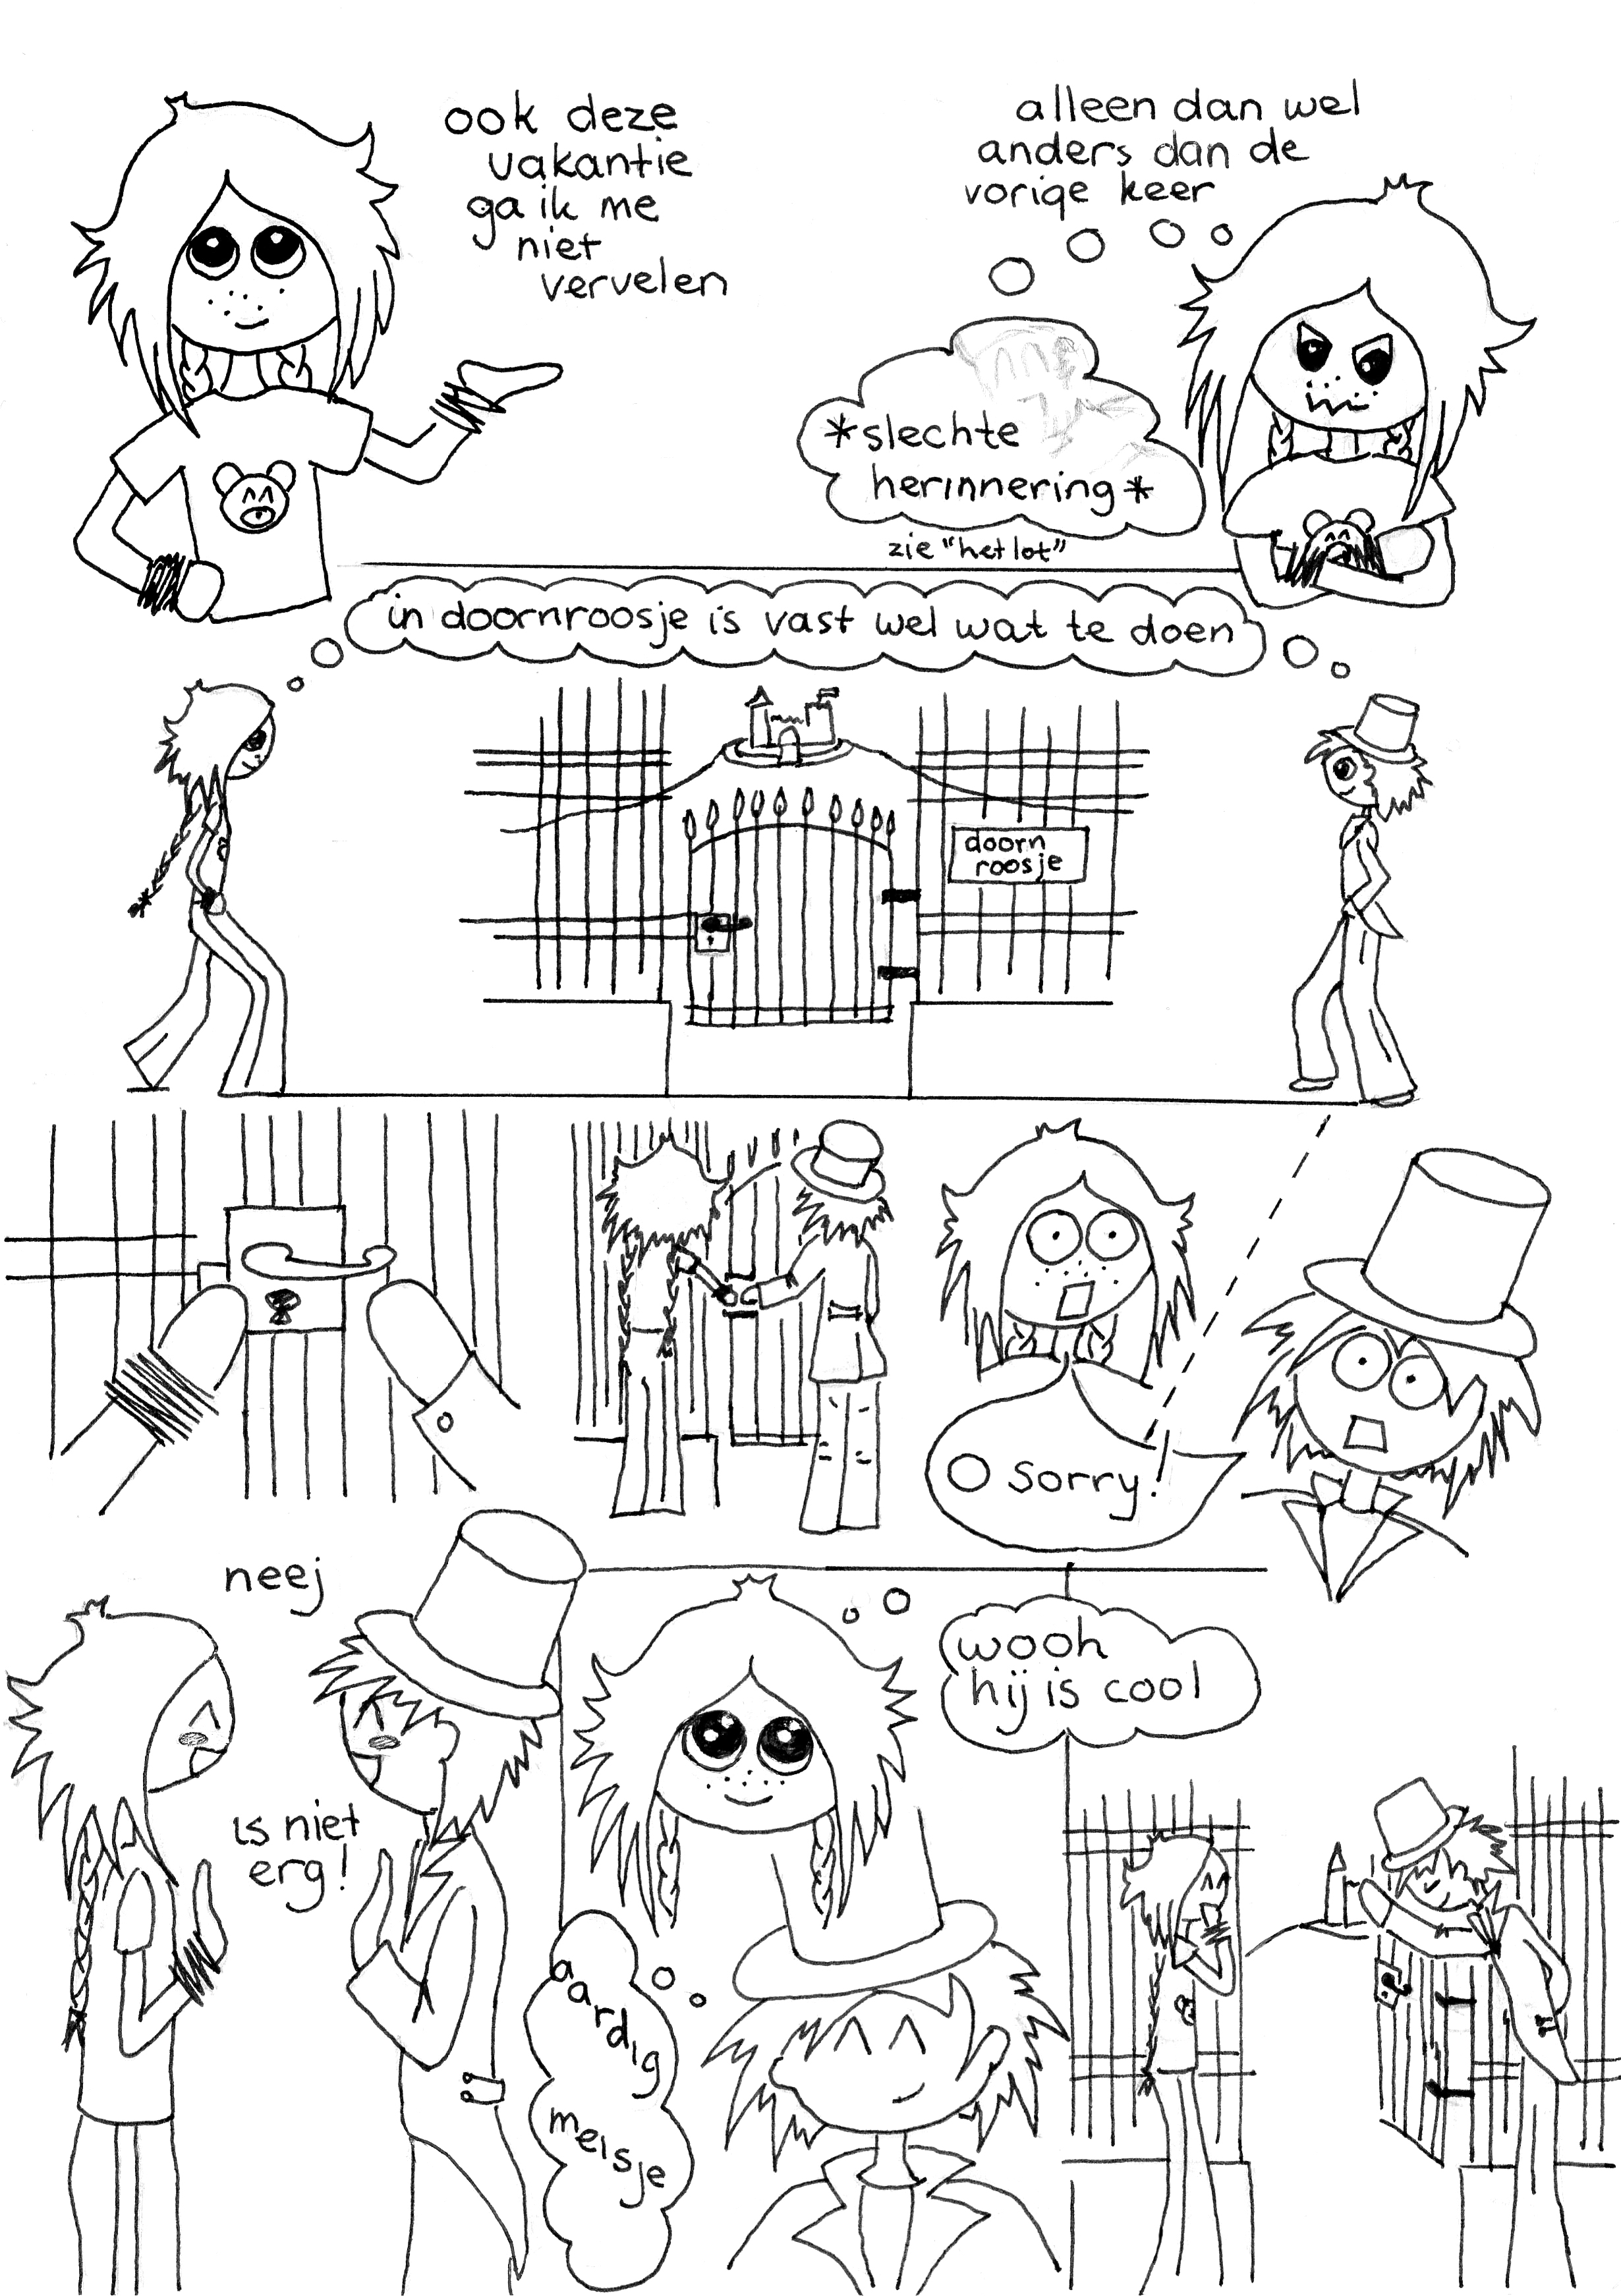 ook deze
vakantie
ga ik me
niet
vervelen
alleen dan wel
anders dan de
vorige keer
*slechte
herinnering*
zie "het lot"
in doornroosje is vast wel wat te doen
doorn
roosje
O sorry!
neej
is niet
erg!
wooh
hij is cool
aardig
meisje